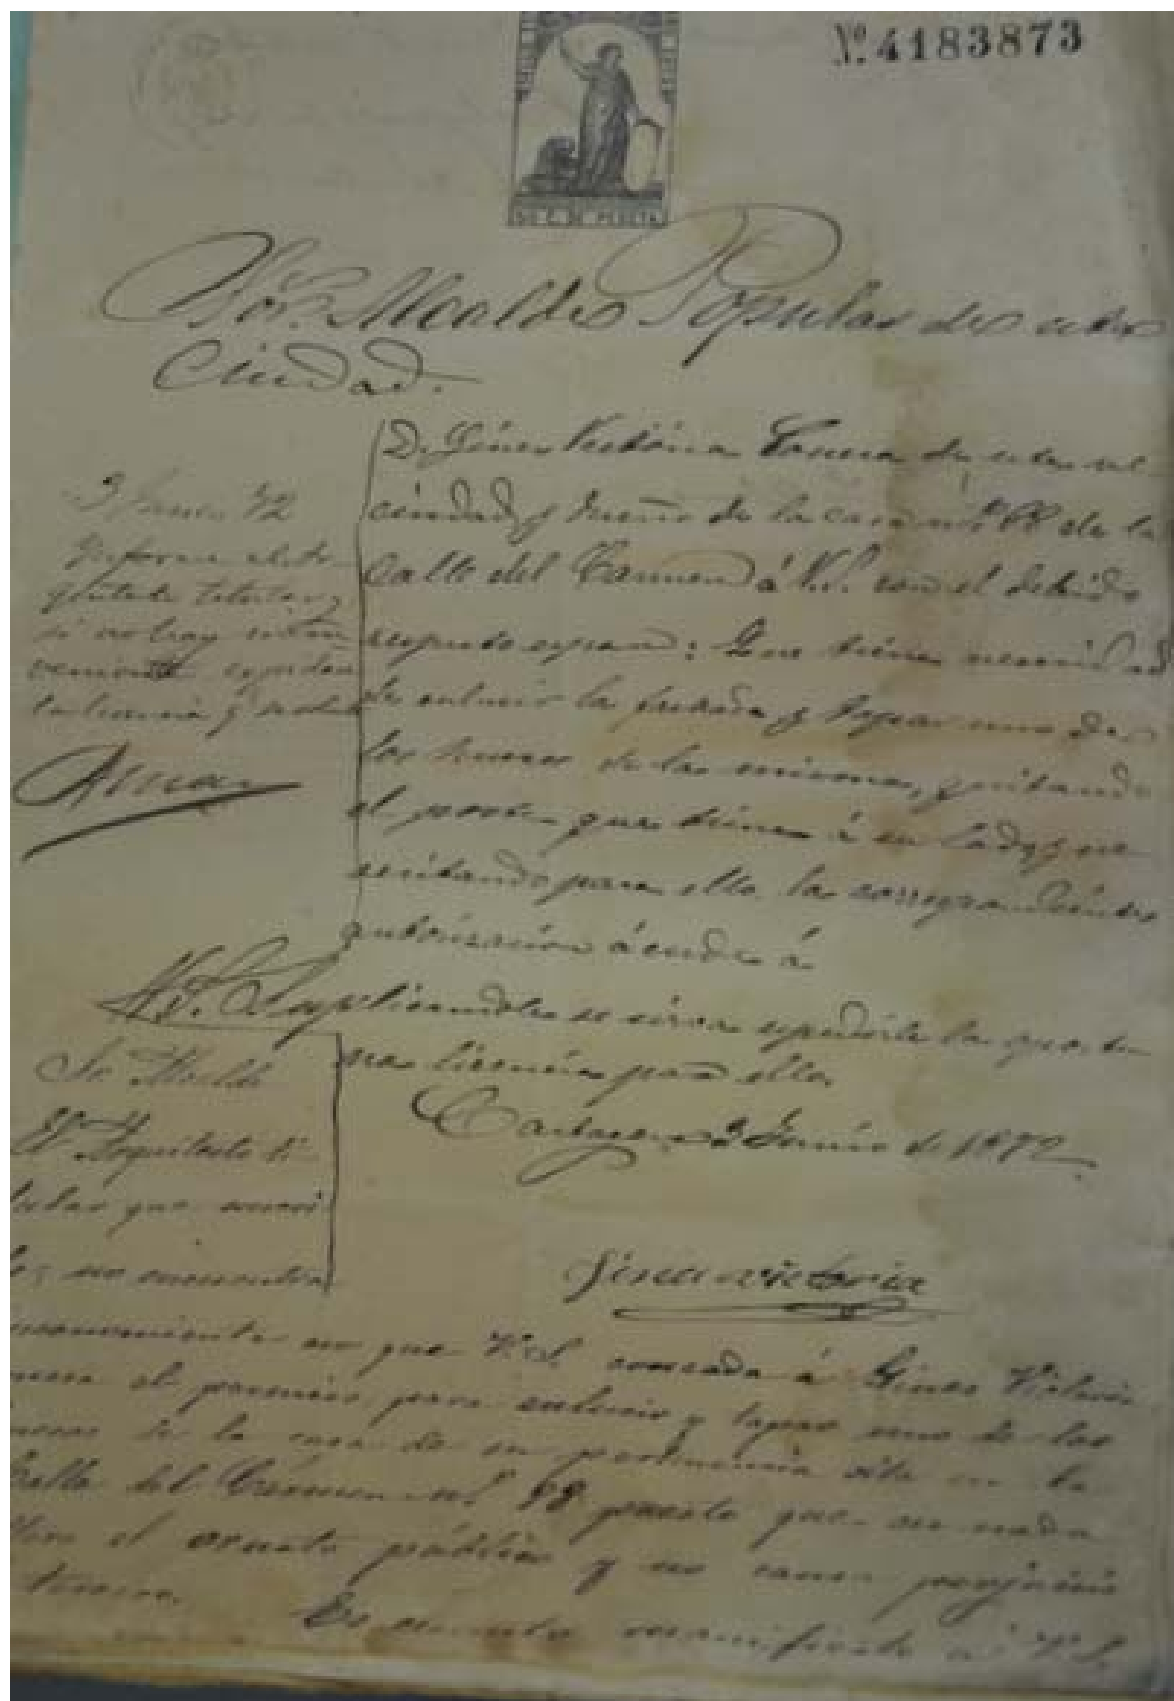 Nº 4183873
50 C. DE PESETA
Sor. Alcalde Popular de esta
Ciudad.
D. Ginés Victoria de esta ve-
cindad y dueño de la casa nº 88 de la
Calle del Carmen á V.S. con el debido
respeto espone: Que tiene necesidad
de enlucir la fachada y tapar uno de
los huecos de la misma, quitando
el poste que tiene á su lado y ne-
cesitando para ello la correspondiente
autorización acude á
V.S. Suplicandole se sirva espedirle la oportu-
na licencia para ello.
Cartagena 3 Junio de 1872
Gines victoria
3 Junio 72
Informe el
titular y
si no hay incon
veniente espidase
la licencia
Sr. Alcalde
El Arquitecto ti-
tular que suscri-
be, no encuentra
inconveniente en que V.S. conceda á Gines Victoria
el permiso para enlucir y tapar uno de los
huecos de la casa de su pertenencia sita en la
Calle del Carmen nº 88 puesto que en nada
el ornato público y no causa perjuicio
tercero.
Es cuanto manifiesto á V.S.